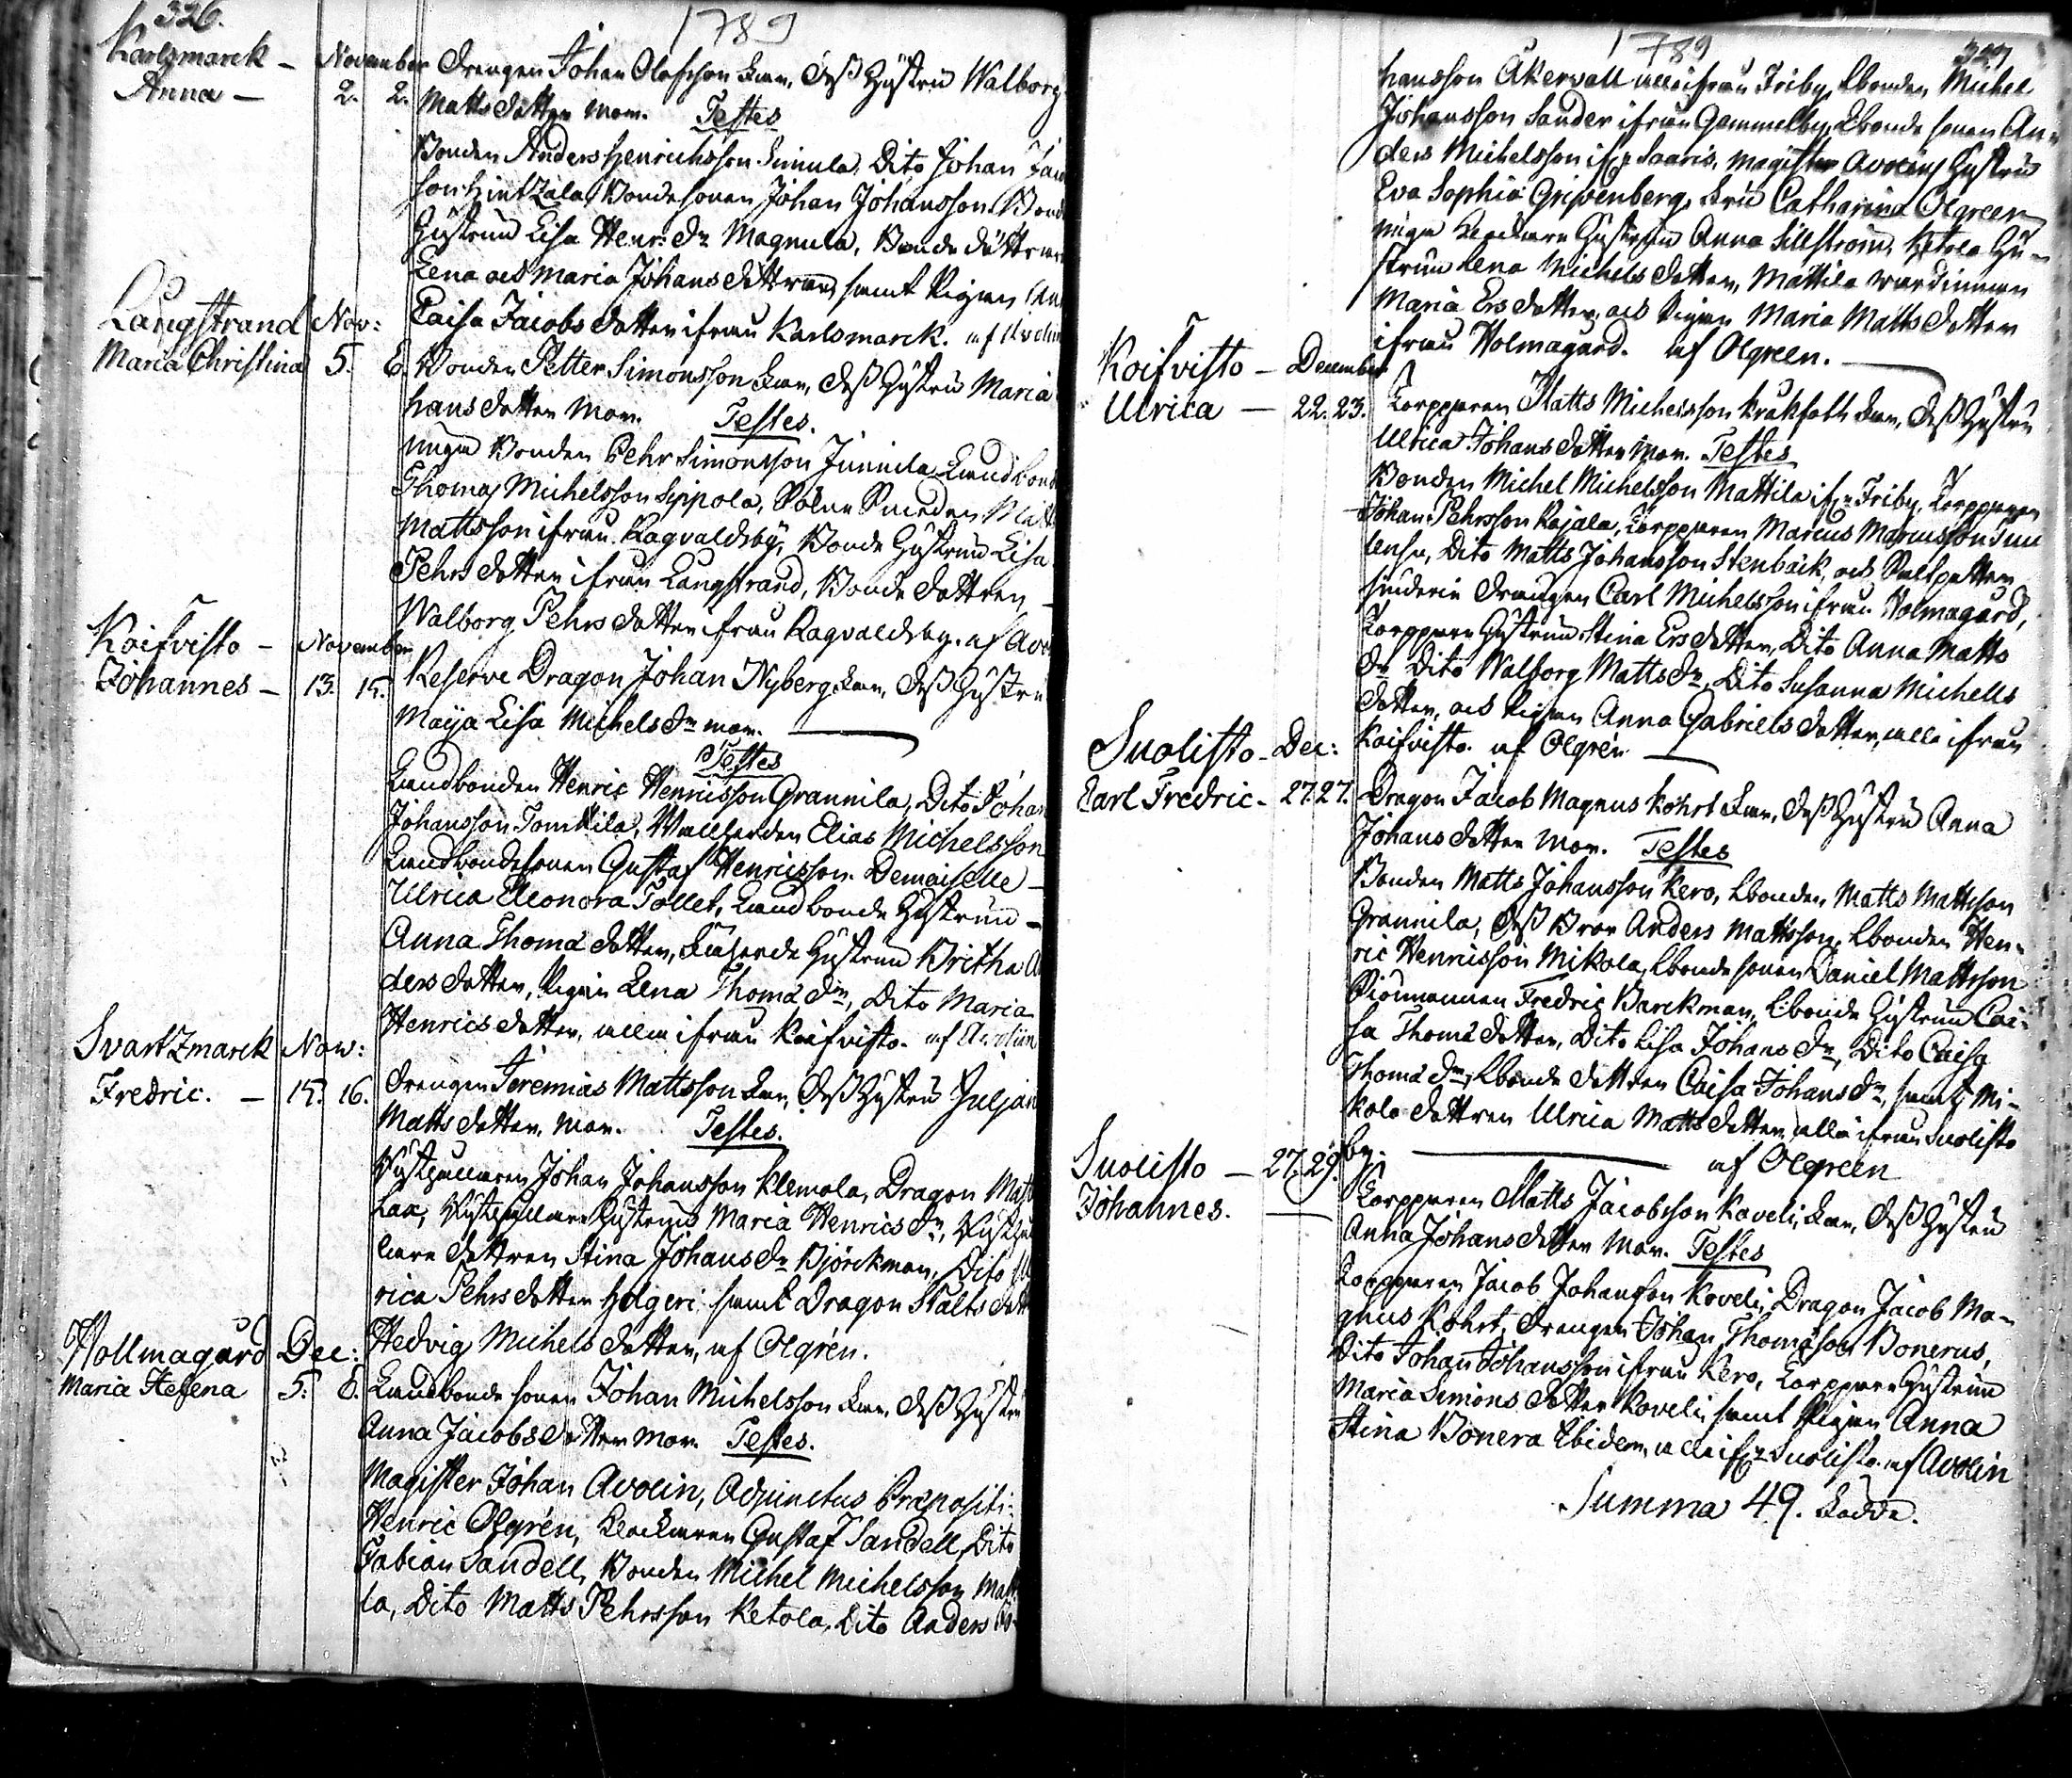 326.
1789
Karlsmarck - November
Anna - 2. 2.
Drengen Johan Olofsson Far, dess Hustru Walborg
Matts dotter Mor. Testes
Bonden Anders Henrichsson Simula, Dito Johan
son Hintzala, Bondesonen Johan Johansson. Bonde
Hustrun Lisa Henr: dr Magnula, Bonde döttrarne
Lena och Maria Johans döttrar, samt Pigan
Caisa Jacobs dotter ifrån Karlsmarck. af Avolin
Långstrand Nov:
Maria Christina 5. 6.
Bonden Petter Simonsson Far, dess Hustru Maria
hans dotter Mor. Testes.
unga Bonden Pehr Simonsson Junnila Landbond
Thomas Michelsson Sippola, Sokne Smeden
Mattsson ifrån Ragvaldsby, Bonde Hustrun Lisa
Pehrs dotter ifrån Långstrand, Bonde dottren
Walborg Pehrs dotter ifrån Ragvaldsby. af Avo
Koifvisto - November
Johannes - 13. 15.
Reserve Dragon Johan Nyberg Far, dess Hustru
Maija Lisa Michels dr mor.
Testes
Landbonden Henric Henricsson Grannila, Dito Johan
Johansson Tomkila, Vallfarden Elias Michelsson
Landbondesonen Gustaf Henricsson. Demoiselle
Ulrica Eleonora Tollet, Landbonde Hustrun
Anna Thomæ dotter, Hustrun Britha
ders dotter, Pigan Lena Thomæ dr, Dito Maria
Henrics dotter, alla ifrån Koifvisto. af Avolin
Svartzmarck Nov:
Fredric. - 15. 16.
Drengen Jeremias Mattsson Far, dess Hustru Juljan
Matts dotter, Mor. Testes.
Rusthållaren Johan Johansson Klemola, Dragon
Lax, Rusthållare Hustrun Maria Henrics dr,
lare dottren Stina Johans dr Björckman, Dito
rica Pehrs dotter Holgeri samt Dragon Stålts dott
Hedvig Michels dotter, af Olgrén.
Hollmagård Dec:
Maria Helena 5. 6.
Landbonde sonen Johan Michelsson Far, dess Hustru
Anna Jacobs dotter Mor. Testes.
Magister Johan Avolin, Adjunctus Præpositi:
Henric Olgrén, Klockaren Gustaf Sandell, Dito
Fabian Sandell, Bonden Michel Michelsson
la, Dito Matts Pehrsson Ketola, Dito Anders
1789
327
hansson Åkervall alla ifrån Friby, Lbonden Michel
Johansson Sander ifrån Gammelby, Lbonde sonen An-
ders Michelsson ifr. Saaris, Magister Avolins Hustru
Eva Sophia Gripenberg, Fru Catharina Olgreen
unga Klockare Hustrun Anna Sillström, Ketola Hu-
strun Lena Michels dotter, Mattila wärdinnan
Maria Ers dotter, och Pigan Maria Matts dotter
ifrån Holmagard. af Olgreen.
Koifvisto - December
Ulrica - 22. 23.
Torpparen Matts Michelsson Far, dess Hustru
Ulrica Johans dotter Mor. Testes
Bonden Michel Michelsson Mattila ifr. Friby, Torpparen
Johan Pehrsson Rajala, Torpparen Marcus Marcusson
Dito Matts Johansson Stenback, och
Drengen Carl Michelsson ifrån Holmagård,
Torppare Hustrun Stina Ers dotter, Dito Anna Matts
dr Dito Walborg Matts dr, Dito Susanna Michells
dotter, och Pigan Anna Gabriels dotter, alla ifrån
Koifvisto. af Olgrén
Suolisto - Dec:
Carl Fredric - 27. 27.
Dragon Jacob Magnus Kohrt Far, dess Hustru Anna
Johans dotter Mor. Testes
Bonden Matts Johansson Kero, Lbonden Matts Mattsson
Grannila, dess Bror Anders Mattsson, Lbonden Hen-
ric Henricsson Mikola, Lbonde sonen Daniel Mattsson
Fredric Barckman, Lbonde Hustrun Cai-
sa Thomæ dotter, Dito Lisa Johans dr, Dito Caisa
Thomæ dr, Lbonde dottren Caisa Johans dr, samt Mi-
kola dottren Ulrica Matts dotter, alla ifrån Suolisto
by. af Olgreen
Suolisto - 27. 29.
Johannes.
Torpparen Matts Jacobsson Koveli, Far, dess Hustru
Anna Johans dotter Mor. Testes
Torpparen Jacob Johansson Koveli, Dragon Jacob Ma-
gnus Kohrt, Drengen Johan Thomæson Bonerus,
Dito Johan Johansson ifrån Kero, Torppare Hustrun
Maria Simons dotter Koveli, samt Pigan Anna
Stina Bonera Ibidem, alla ifr. Suolisto. af Avolin
Summa 49. födde.